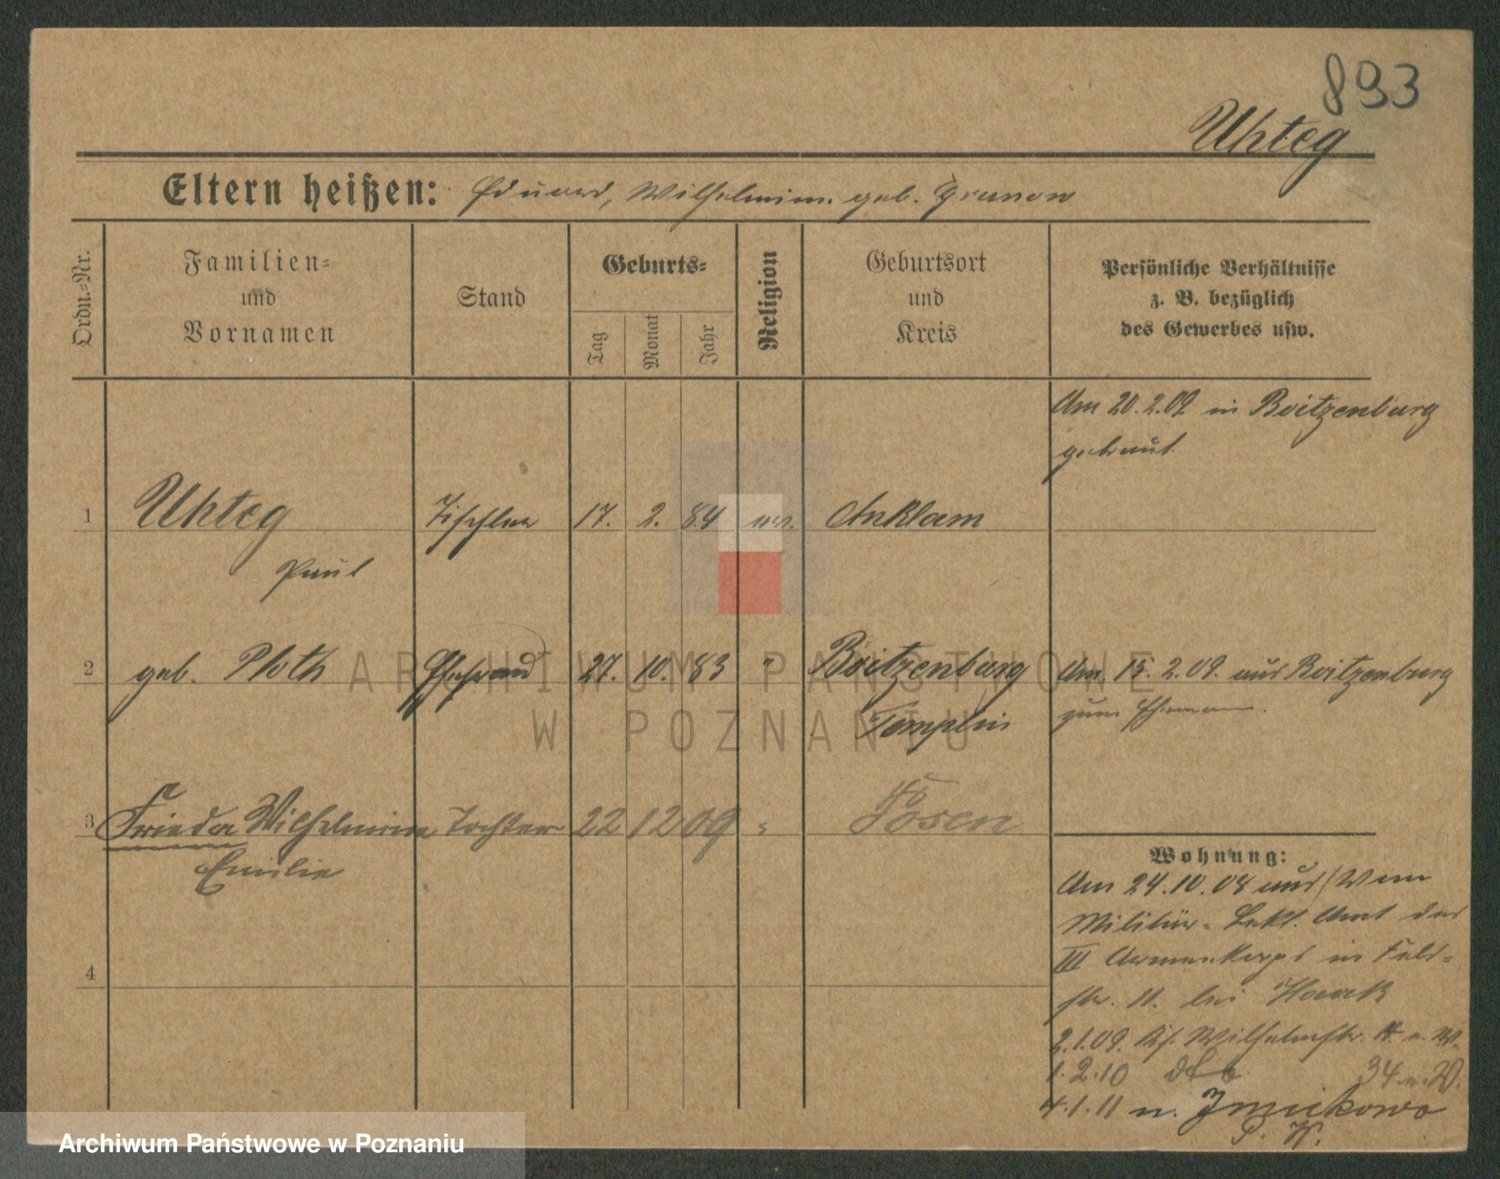 893
Uhteg
Eltern heißen: Eduard, Wilhelmin. geb. Grunow
Ordn.=Nr.
Familien=
und
Vornamen
Stand
Geburts=
Tag
Monat
Jahr
Religion
Geburtsort
und
Kreis
Persönliche Verhältnisse
z. B. bezüglich
des Gewerbes usw.
Am 20.2.09. in Boitzenburg
getraut.
1 Uhteg Tischler 17. 2. 84 ev. Anklam
Paul
2 geb. Ploth Ehefrau 27. 10. 83 " Boitzenburg
Templin
Am 15. 2. 09. aus Boitzenburg
zum Ehemann.
3 Frieda Wilhelmine Tochter 22 12 09 " Posen
Emilie
4
Wohnung:
Am 24.10.08 aus
Militär- Bekl. Amt des
III Armeekorps in Feld=
str. 11. bei Haack
2.1.09. Wilhelmstr.
1.2.10 34
4.1.11 n. Junikowo
P. W.
ARCHIWUM PAŃSTWOWE
W POZNANIU
Archiwum Państwowe w Poznaniu